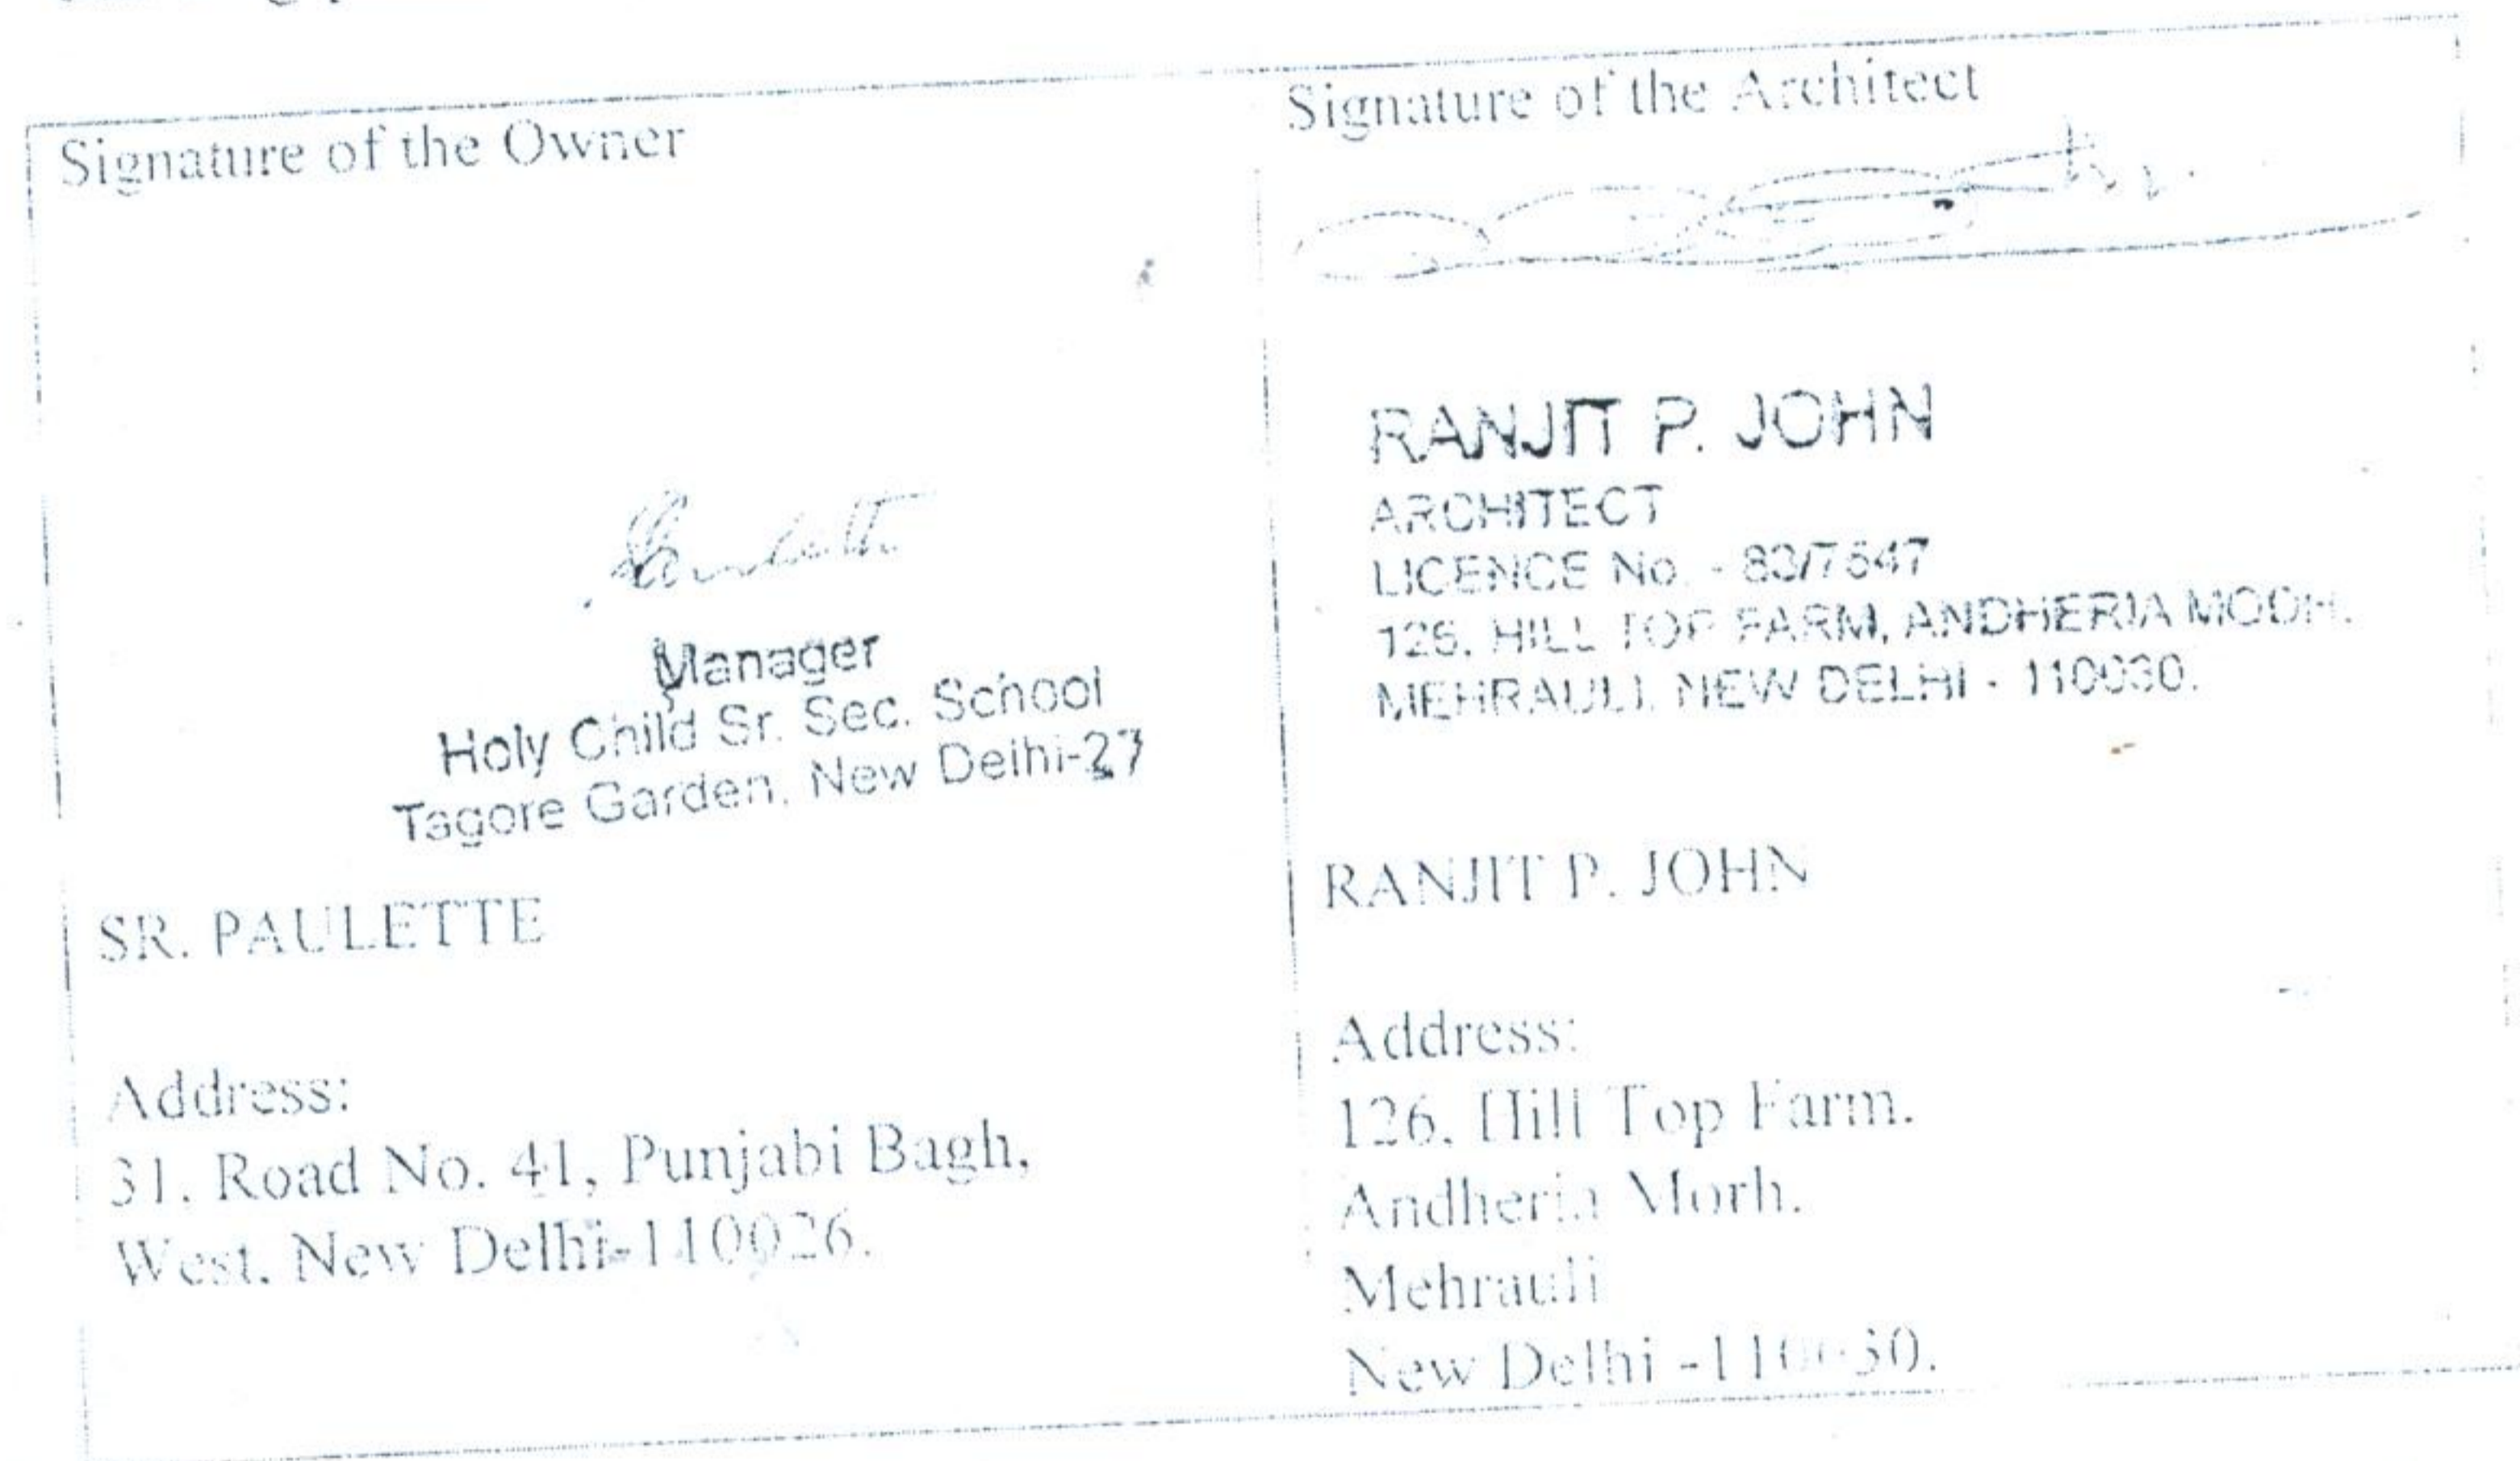 Signature of the Owner
Paulette
Manager
Holy Child Sr. Sec. School
Tagore Garden, New Delhi-27
SR. PAULETTE
Address:
31, Road No. 41, Punjabi Bagh,
West, New Delhi-110026.
Signature of the Architect
RANJIT P. JOHN
ARCHITECT
LICENCE No. - 83/7647
126, HILL TOP FARM, ANDHERIA MODH,
MEHRAULI, NEW DELHI - 110030.
RANJIT P. JOHN
Address:
126, Hill Top Farm.
Andheria Morh.
Mehrauli
New Delhi -110030.